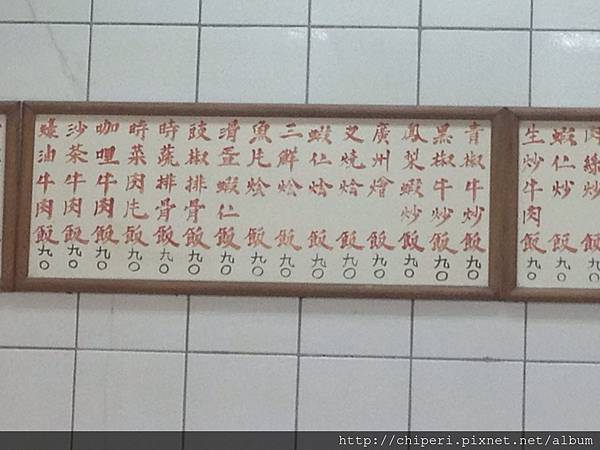 肉絲炒飯九〇
蝦仁炒飯九〇
生炒牛肉飯九〇
青椒牛炒飯九〇
黑椒牛炒飯九〇
鳳梨蝦炒飯九〇
廣州燴飯九〇
叉燒燴飯九〇
蝦仁燴飯九〇
三鮮燴飯九〇
魚片燴飯九〇
滑蛋蝦仁飯九〇
豉椒排骨飯九〇
時蔬排骨飯九〇
時菜肉片飯九〇
咖哩牛肉飯九〇
沙茶牛肉飯九〇
蠔油牛肉飯九〇
http://chiperi.pixnet.net/album